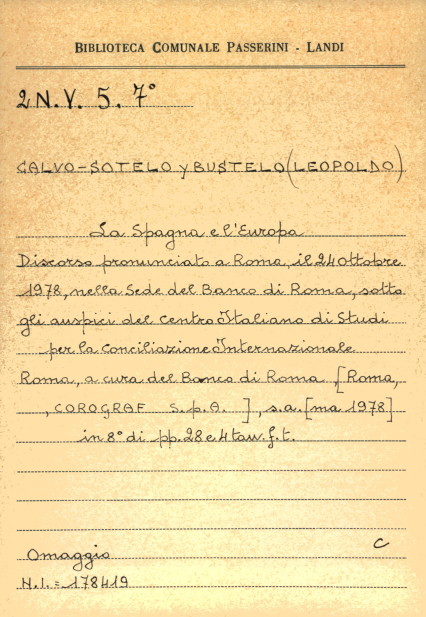 BIBLIOTECA COMUNALE PASSERINI - LANDI
2 N.V. 5. 7°
CALVO-SOTELO y BUSTELO (LEOPOLDO)
La Spagna e l'Europa
Discorso pronunciato a Roma, il 24 Ottobre
1978, nella Sede del Banco di Roma, sotto
gli auspici del Centro Italiano di Studi
per la Conciliazione Internazionale
Roma, a cura del Banco di Roma, [Roma,
, COROGRAF S.p.A. ], s.a. [ma 1978]
in 8° di pp. 28 e 4 tav. f. t.
C
Omaggio
N.I. = 178419